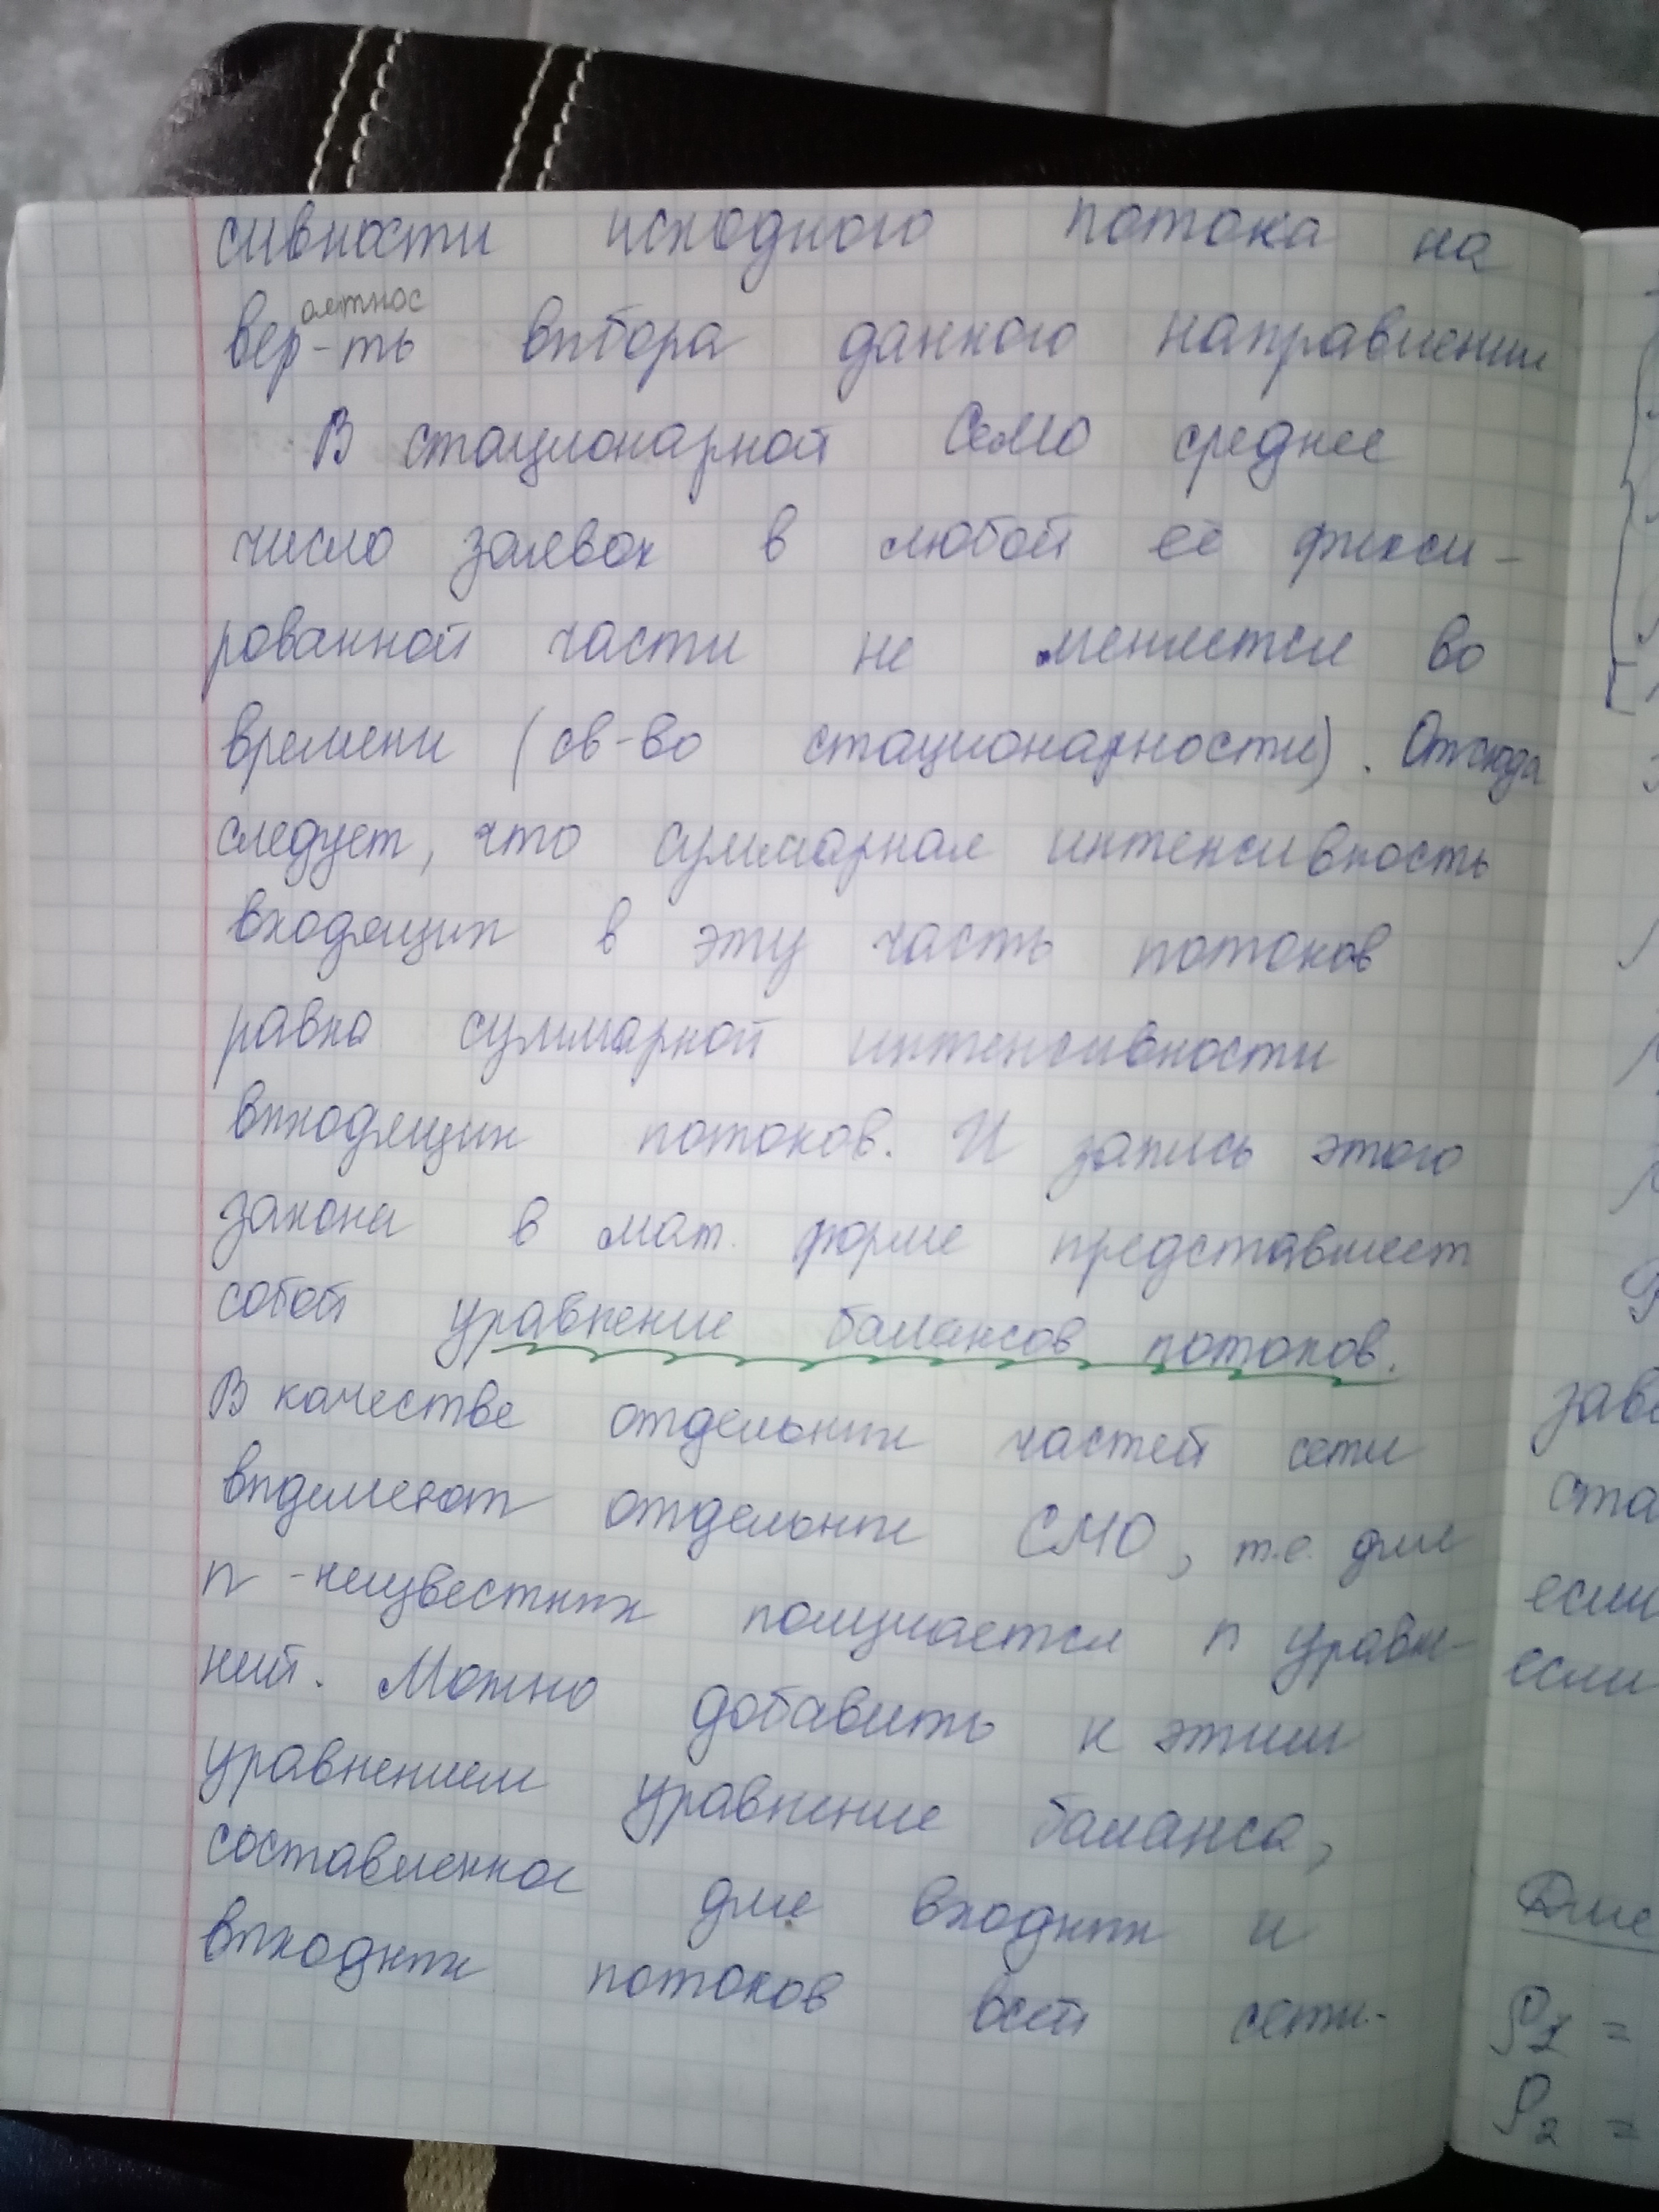 сивности исходного потока на
оятнос
вер-ть выбора данного направления
В стационарной СеМО среднее
число заявок в любой её фикси-
рованной части не меняется во
времени (св-во стационарности). Отсюда
следует, что суммарная интенсивность
входящих в эту часть потоков
равна суммарной интенсивности
выходящих потоков. И запись этого
закона в мат. форме представляет
собой уравнение балансов потоков.
В качестве отдельных частей сети
выделяют отдельные СМО, т.е. для
n -неизвестных получается n уравне-
ний. Можно добавить к этим
уравнениям уравнение баланса,
составленное для входных и
выходных потоков всей сети.
заві
ста
если
если
Для
ρ1 =
ρ2 =